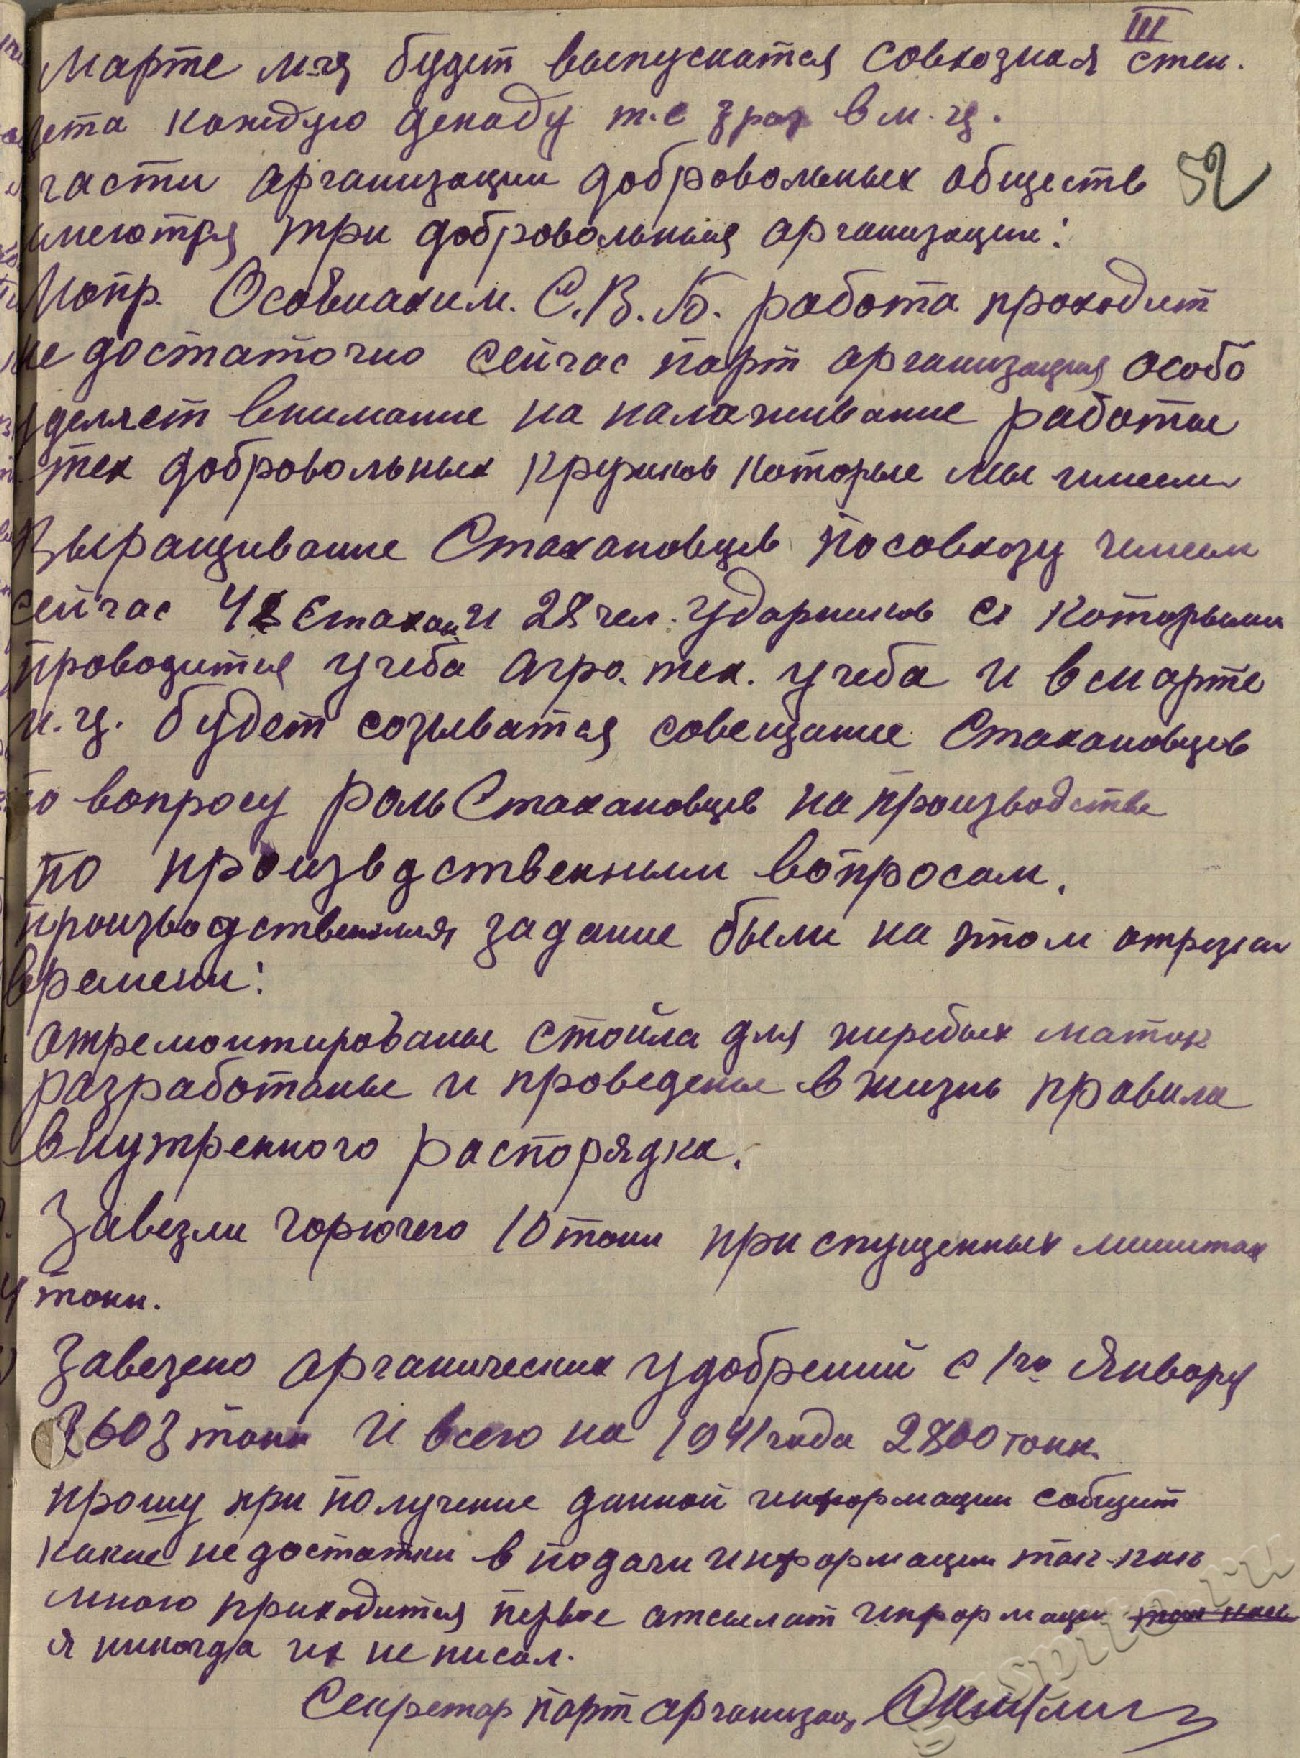 III
марте м-ця будет выпускатся совхозная стен.
зета каждую декаду т.е 3 раз в м.ц.
52
части арганизации добровольных обществ
имеются три добровольныя арганизации:
Мопр. Осовиахим. С.В.Б. работа проходит
не достаточно сейчас парт арганизация особо
уделяет внимание на налаживание работы
тех добровольных кружков которые мы имеем
Выращивание Стахановцев по совхозу имеем
сейчас 42 стахан и 28 чел. ударников с которыми
проводится учеба агро. тех. учеба и в марте
м.ц. будет созыватся совещание Стахановцев
по вопросу роль Стахановцев на производстве
по произвдственным вопросам.
производственныя задание были на этом отрезки
времени:
отремонтированы стойла для жеребых маток
разработаны и проведены в жизнь правила
внутренного распорядка.
Завезли горючего 10 тонн при спущенных лимитах
4 тонн.
Завезено арганических удобрений с 1го Января
2603 тонн и всего на 1941 года 2800 тонн.
прошу при получение данной информации сообщит
какие недостатки в подачи информации так-как
много приходится первые отсылат информации так как
я никогда их не писал.
Секретар парт арганизац
gaspito.ru